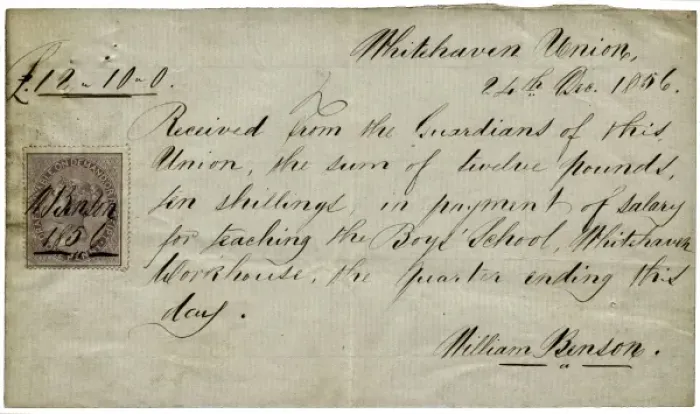 Whitehaven Union,
24th Dec. 1856.
£.12 " 10 " 0.
Received from the Guardians of this
Union, the sum of twelve pounds,
ten shillings, in payment of salary
for teaching the Boys' School, Whitehaven
Workhouse, the quarter ending this
day.
William Benson.
ON DEMAND
W Benson
1856